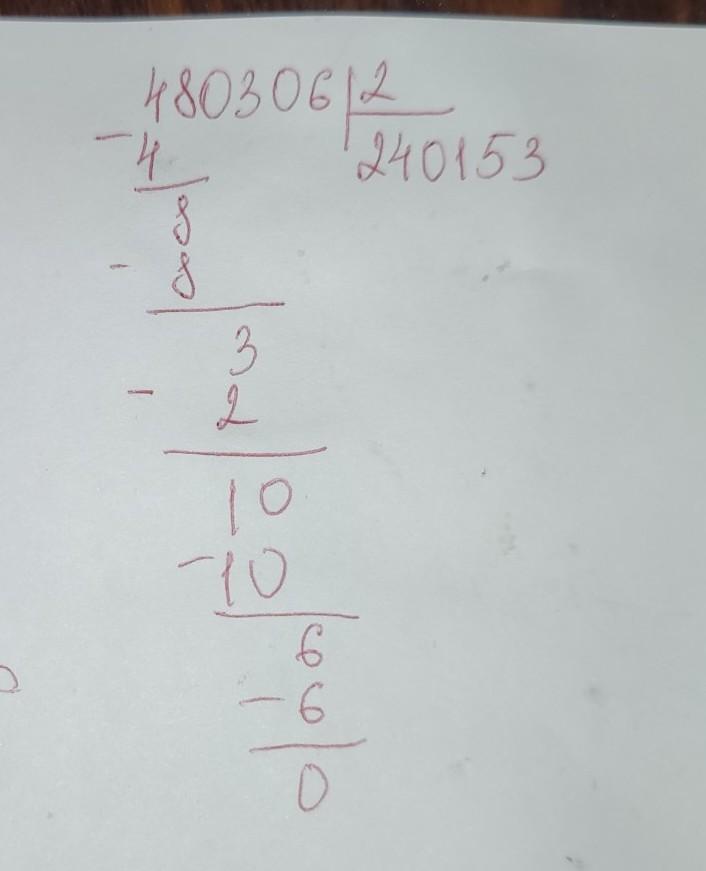 480306 | 2
- 4 240153
8
- 8
3
- 2
10
- 10
6
- 6
0